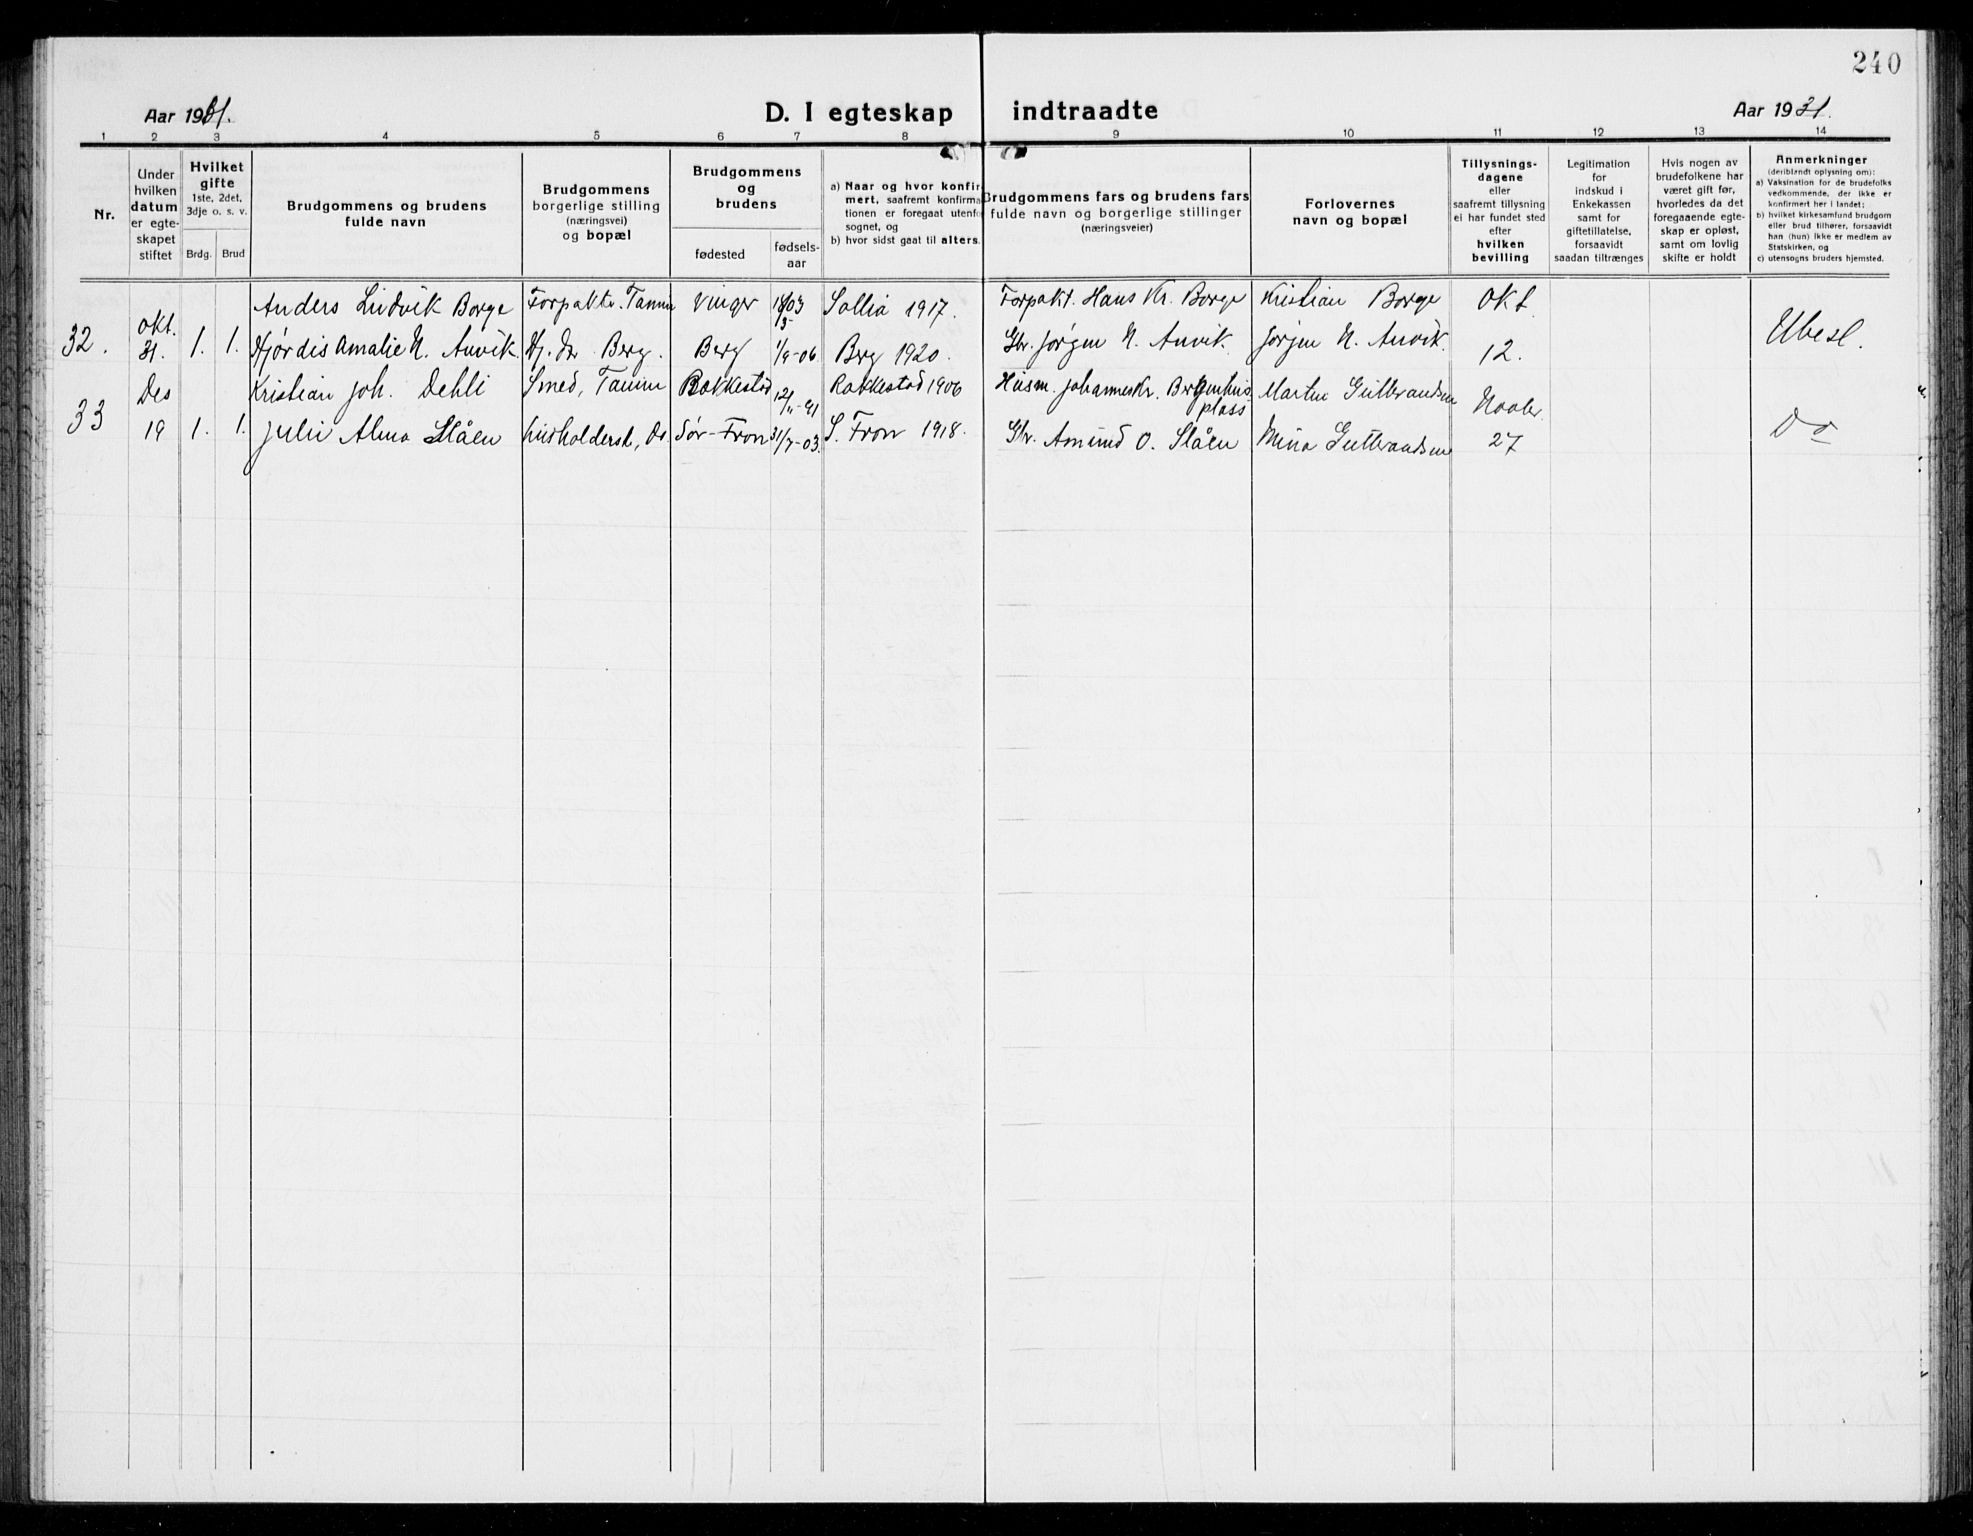 240
Aar 1931.
D. I egteskap indtraadte
Aar 1931.
1 2 3 4 5 6 7 8 9 10 11 12 13 14
Nr.
Under
hvilken
datum
er egte-
skapet
stiftet
Hvilket
gifte
1ste, 2det,
3dje o. s. v.
Brdg. Brud
Brudgommens og brudens
fulde navn
Brudgommens
borgerlige stilling
(næringsvei)
og bopæl
Brudgommens
og
brudens
fødested
fødsels-
aar
a) Naar og hvor konfir
mert, saafremt konfirma
tionen er foregaat utenfo
sognet, og
b) hvor sidst gaat til alters.
Brudgommens fars og brudens fars
fulde navn og borgerlige stillinger
(næringsveier)
Forlovernes
navn og bopæl
Tillysnings-
dagene
eller
saafremt tillysning
ei har fundet sted
efter
hvilken
bevilling
Legitimation
for
indskud i
Enkekassen
samt for
giftetillatelse,
forsaavidt
saadan tiltrænges
Hvis nogen av
brudefolkene har
været gift før,
hvorledes da det
foregaaende egte-
skap er opløst,
samt om lovlig
skifte er holdt
Anmerkninger
(deriblandt oplysning om):
a) Vaksination for de brudefolks
vedkommende, der ikke er
konfirmert her i landet;
b) hvilket kirkesamfund brudgom
eller brud tilhører, forsaavidt
han (hun) ikke er medlem av
Statskirken, og
c) utensogns bruders hjemsted.
Anders Ludvik Borge Forpakter. Tanum Vinger 18/5 03 Sollia 1917. Forpakt. Hans Kr. Borge Kristian Borge Okt
32. Okt. 31. 1. 1. Hjørdis Amalie N. Anvik Hj. dr Berg. Berg 1/9-06 Berg 1920. Gbr. Jørgen N. Anvik. Jørgen N. Anvik. 12. Ubesl.
Des Kristian Joh. Dehli Smed, Tanum Rakkestad 12/11-91 Rakkestad 1906 Husm. Johannes Kr. Bergenhus-
plass Martin Gulbrandsen Novbr
33 19 1. 1. Julie Alma Slåen husholdersk, Do. Sør-Fron 31/7-03. S. Fron 1918. Gbr. Amund O. Slåen Mina Gulbrandsen 27 Do